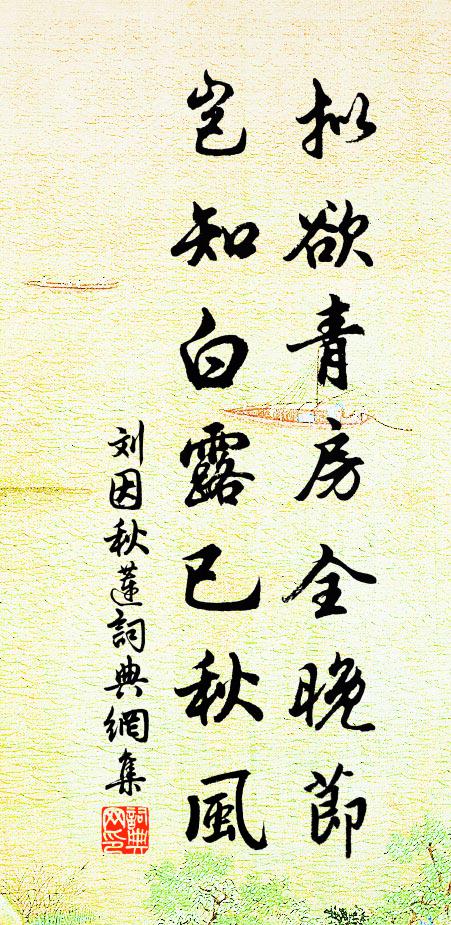 拟欲青房全晚節
岂知白露已秋風
刘因秋蓮詞典網集
詞典網印